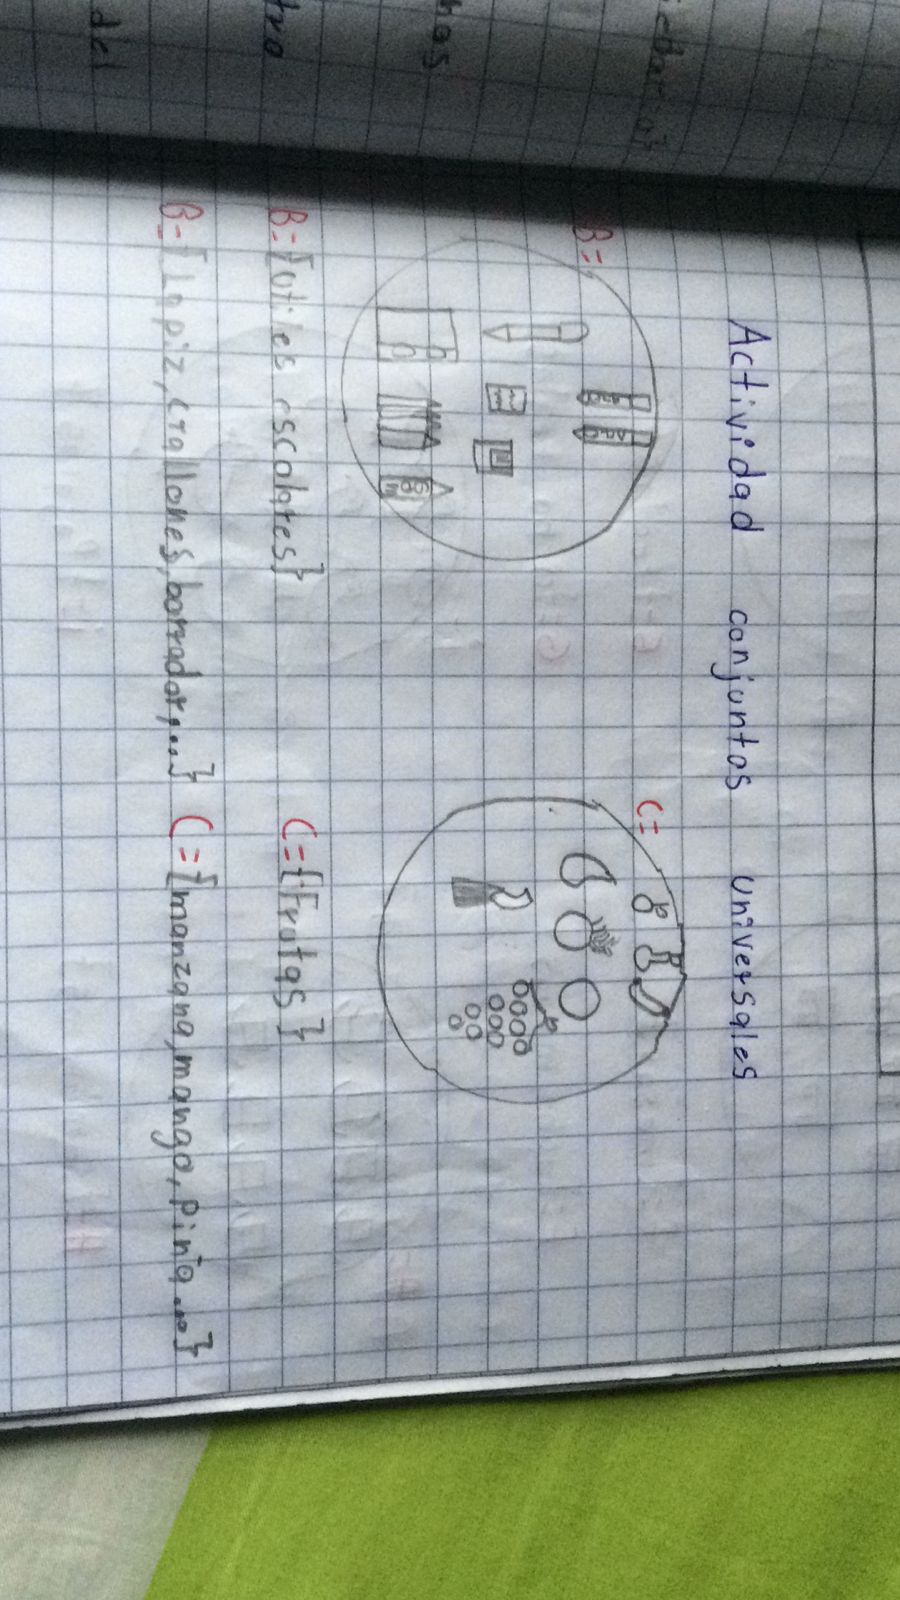 Actividad conjuntos universales
B=
C=
B={utiles escolares}
C={Frutas}
B={Lapiz,crallones,borrador,...}
C={manzana,mango,piña...}
hos
del